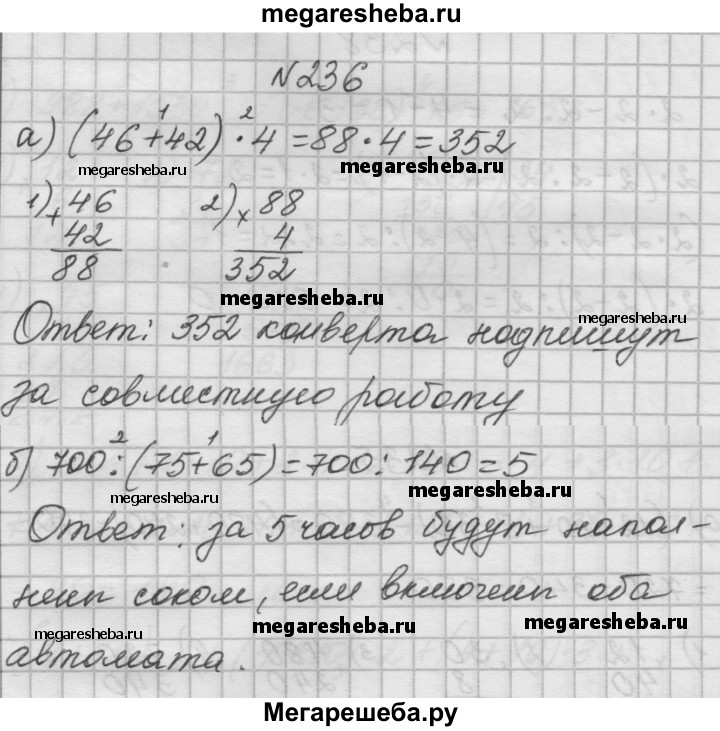 megaresheba.ru
№236
1 2
а) (46+42)·4=88·4=352
megaresheba.ru megaresheba.ru
1) + 46 2) × 88
42 4
88 352
megaresheba.ru
megaresheba.ru
Ответ: 352 конверта надпишут
за совместную работу
2 1
б) 700:(75+65)=700:140=5
megaresheba.ru megaresheba.ru
Ответ: за 5 часов будут напол-
нены соком, если включены оба
megaresheba.ru megaresheba.ru megaresheba.ru
автомата.
Мегарешеба.ру